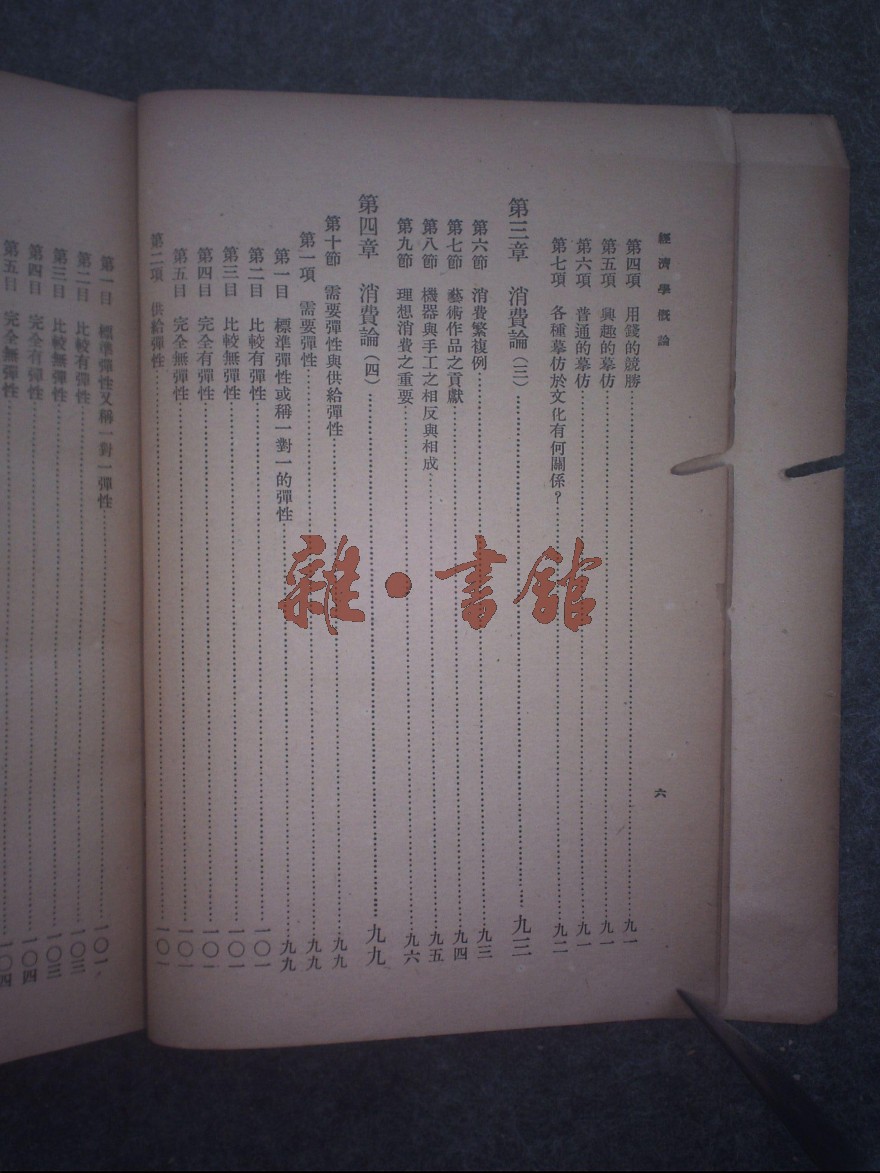 經濟學概論
六
第四項 用錢的競勝……九一
第五項 興趣的摹仿……九一
第六項 普通的摹仿……九一
第七項 各種摹仿於文化有何關係？……九二
第三章 消費論（三）……九三
第六節 消費繁複例……九三
第七節 藝術作品之貢獻……九四
第八節 機器與手工之相反與相成……九五
第九節 理想消費之重要……九六
第四章 消費論（四）……九九
第十節 需要彈性與供給彈性……九九
第一項 需要彈性……九九
第一目 標準彈性或稱一對一的彈性……九九
第二目 比較有彈性……一〇一
第三目 比較無彈性……一〇一
第四目 完全有彈性……一〇一
第五目 完全無彈性……一〇一
第二項 供給彈性……一〇一
第一目 標準彈性又稱一對一彈性……一〇一
第二目 比較有彈性……一〇三
第三目 比較無彈性……一〇三
第四目 完全有彈性……一〇四
第五目 完全無彈性……一〇四
雜·書館